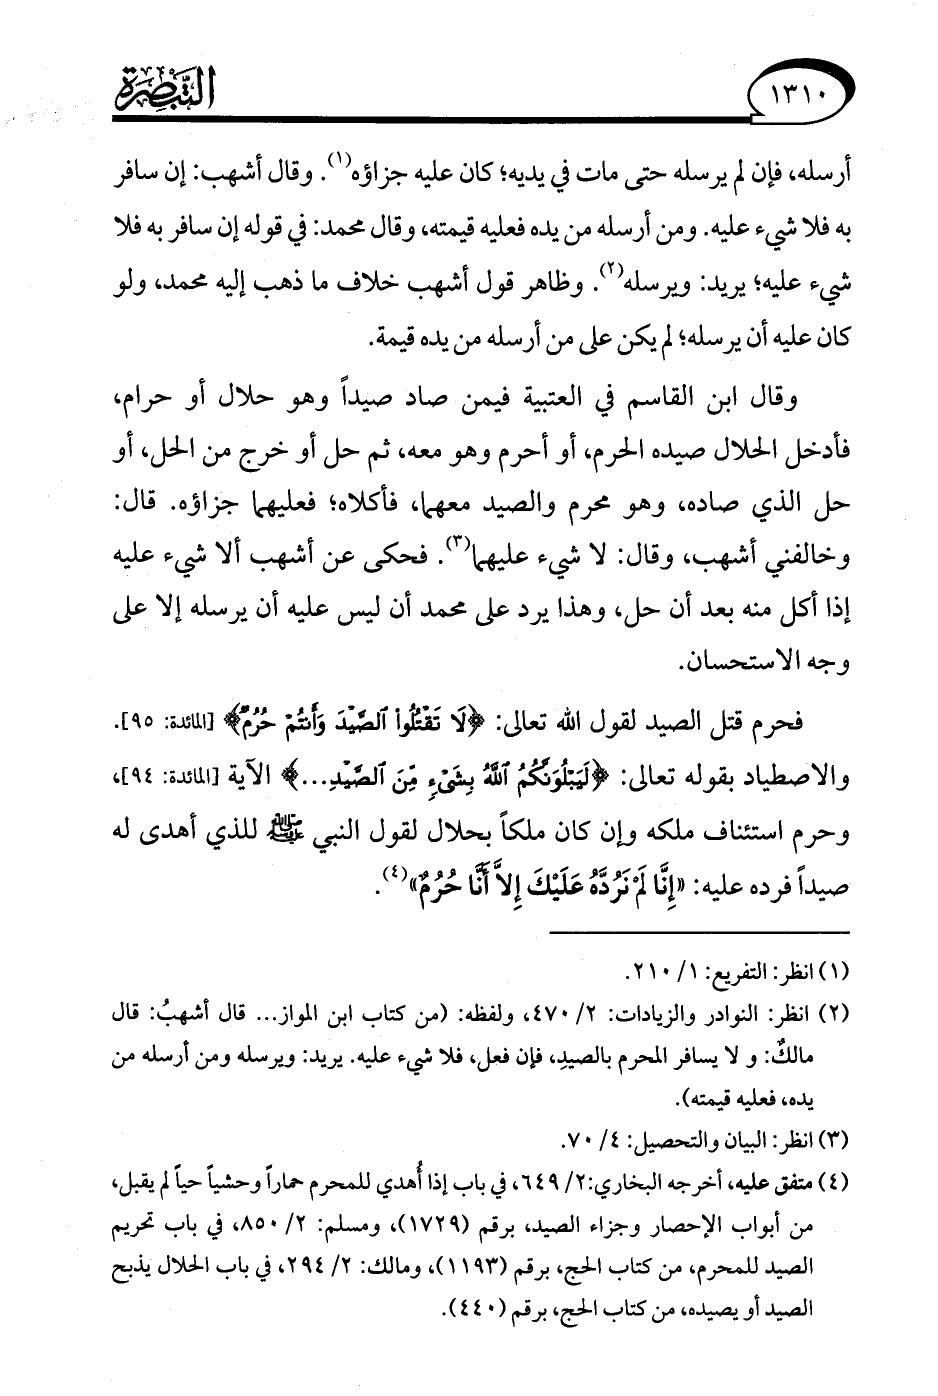 ١٣١٠
التبصرة
أرسله، فإن لم يرسله حتى مات في يديه؛ كان عليه جزاؤه(١). وقال أشهب: إن سافر
به فلا شيء عليه. ومن أرسله من يده فعليه قيمته، وقال محمد: في قوله إن سافر به فلا
شيء عليه؛ يريد: ويرسله(٢). وظاهر قول أشهب خلاف ما ذهب إليه محمد، ولو
كان عليه أن يرسله؛ لم يكن على من أرسله من يده قيمة.
وقال ابن القاسم في العتبية فيمن صاد صيداً وهو حلال أو حرام،
فأدخل الحلال صيده الحرم، أو أحرم وهو معه، ثم حل أو خرج من الحل، أو
حل الذي صاده، وهو محرم والصيد معهما، فأكلاه؛ فعليهما جزاؤه. قال:
وخالفني أشهب، وقال: لا شيء عليهما(٣). فحكى عن أشهب ألا شيء عليه
إذا أكل منه بعد أن حل، وهذا يرد على محمد أن ليس عليه أن يرسله إلا على
وجه الاستحسان.
فحرم قتل الصيد لقول الله تعالى: ﴿لَا تَقْتُلُواْ ٱلصَّيْدَ وَأَنتُمْ حُرُمٌ﴾ [المائدة: ٩٥].
والاصطياد بقوله تعالى: ﴿لَيَبْلُوَنَّكُمُ ٱللَّهُ بِشَىْءٍ مِّنَ ٱلصَّيْدِ...﴾ الآية [المائدة: ٩٤]،
وحرم استئناف ملكه وإن كان ملكاً بحلال لقول النبي ﷺ للذي أهدى له
صيداً فرده عليه: «إِنَّا لَمْ نَرُدَّهُ عَلَيْكَ إِلاَّ أَنَّا حُرُمٌ»(٤).
(١) انظر: التفريع: ١/ ٢١٠.
(٢) انظر: النوادر والزيادات: ٢/ ٤٧٠، ولفظه: (من كتاب ابن المواز... قال أشهبُ: قال
مالكٌ: و لا يسافر المحرم بالصيدِ، فإن فعل، فلا شيء عليه. يريد: ويرسله ومن أرسله من
يده، فعليه قيمته).
(٣) انظر: البيان والتحصيل: ٤/ ٧٠.
(٤) متفق عليه، أخرجه البخاري:٢/ ٦٤٩، في باب إذا أُهدي للمحرم حماراً وحشياً حياً لم يقبل،
من أبواب الإحصار وجزاء الصيد، برقم (١٧٢٩)، ومسلم: ٢/ ٨٥٠، في باب تحريم
الصيد للمحرم، من كتاب الحج، برقم (١١٩٣)، ومالك: ٢/ ٢٩٤، في باب الحلال يذبح
الصيد أو يصيده، من كتاب الحج، برقم (٤٤٠).